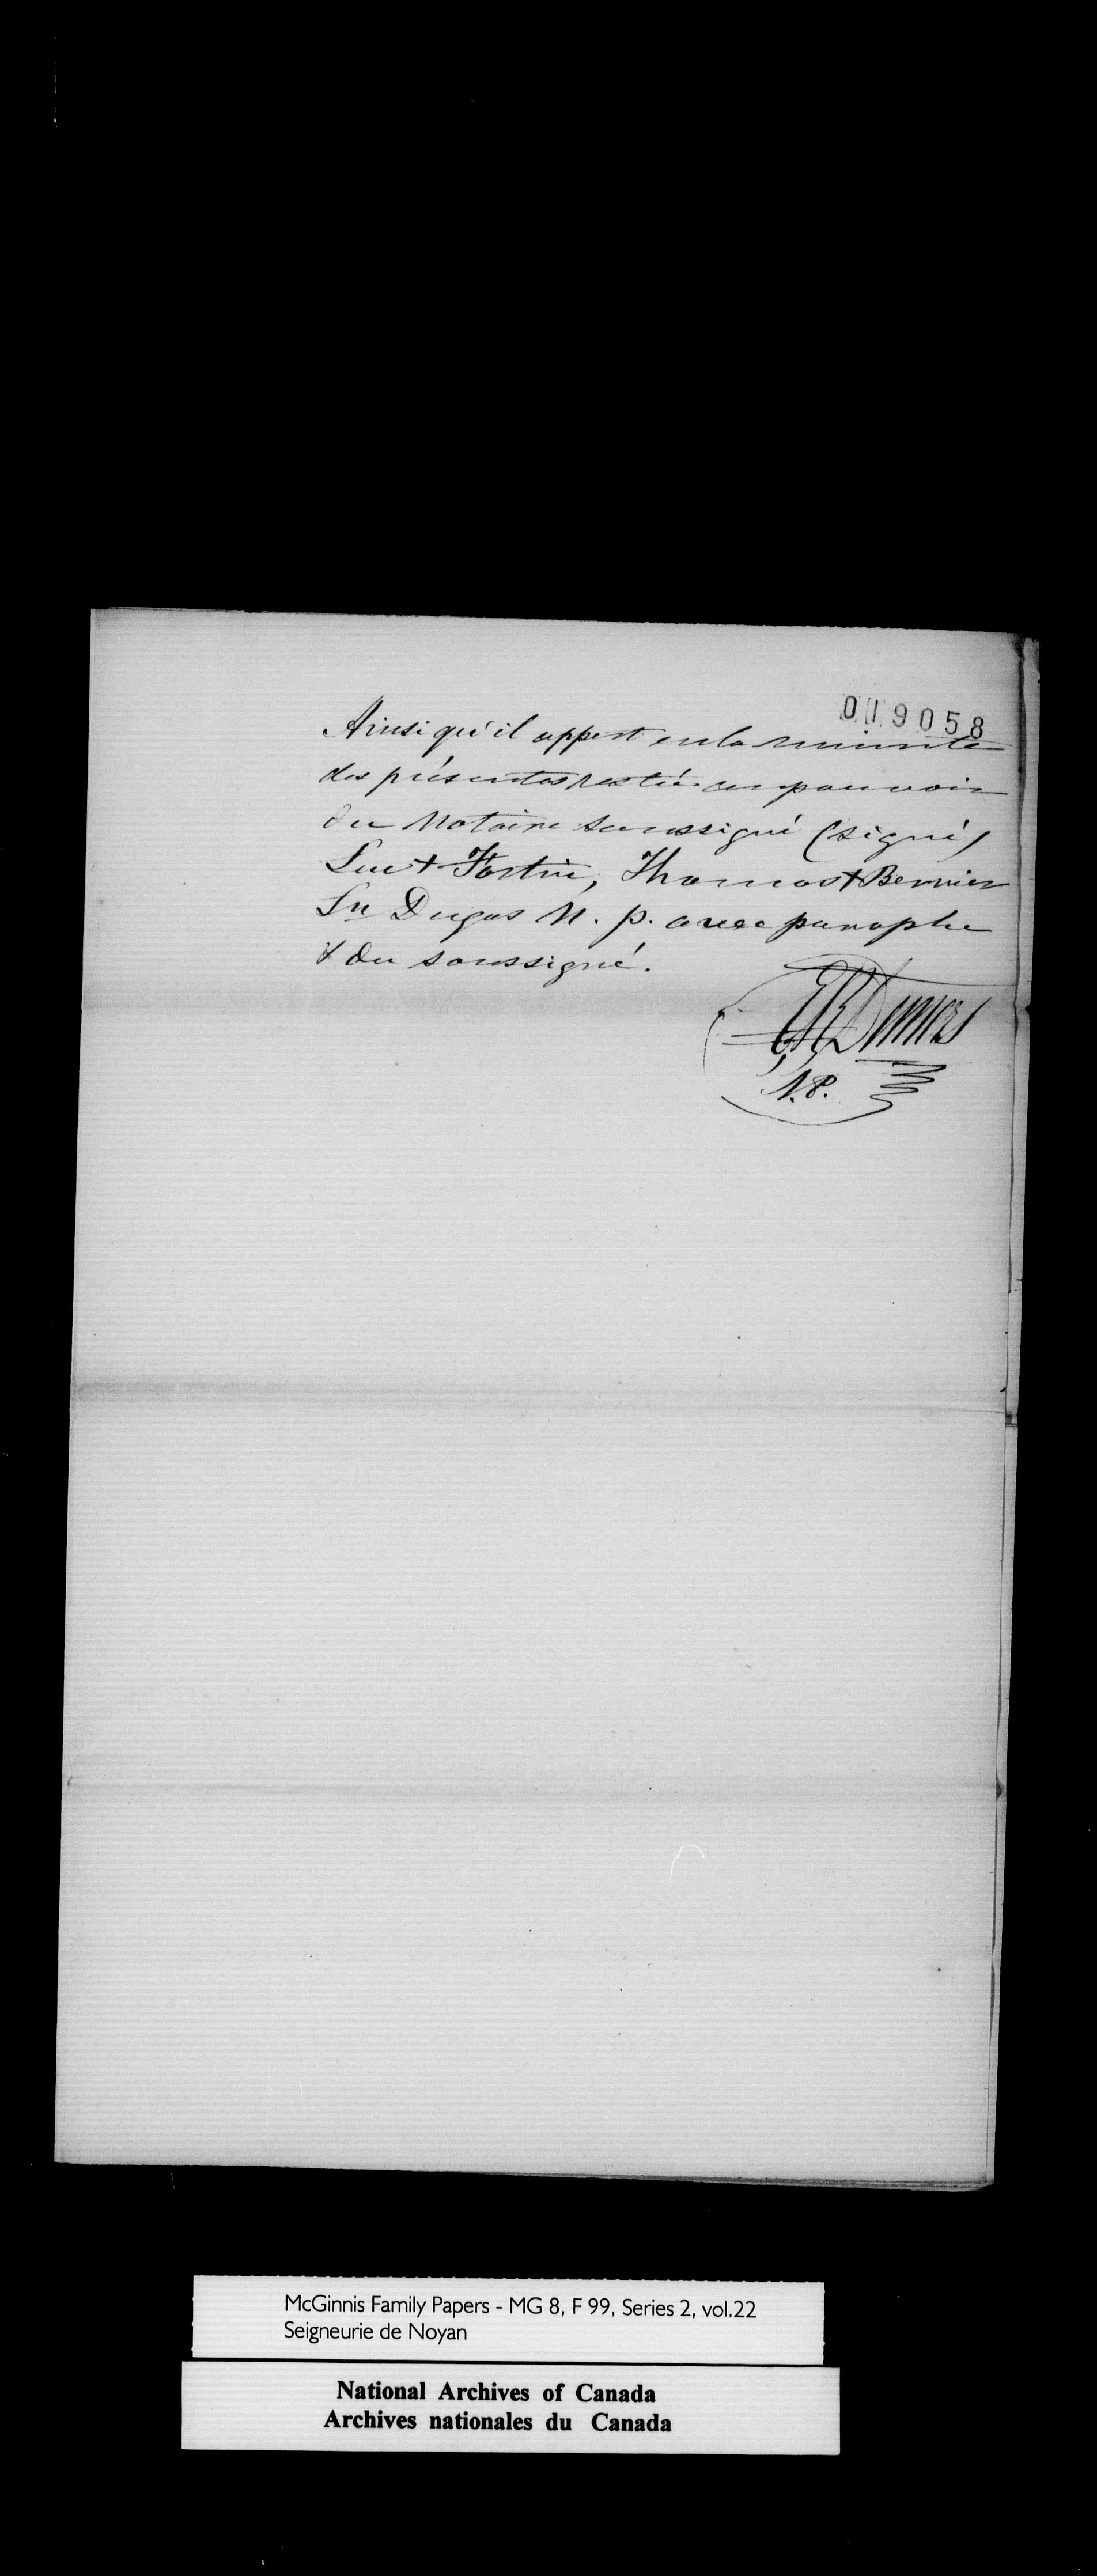 019058
Ainsi qu'il appert en la minute
des présentes restée en pouvoir
du Notaire soussigné (signé)
Luc + Fortin, Thomas + Bernier
Ln Dugas N. p. avec paraphe
& du soussigné.
Demers
N.P.
McGinnis Family Papers - MG 8, F 99, Series 2, vol.22
Seigneurie de Noyan
National Archives of Canada
Archives nationales du Canada